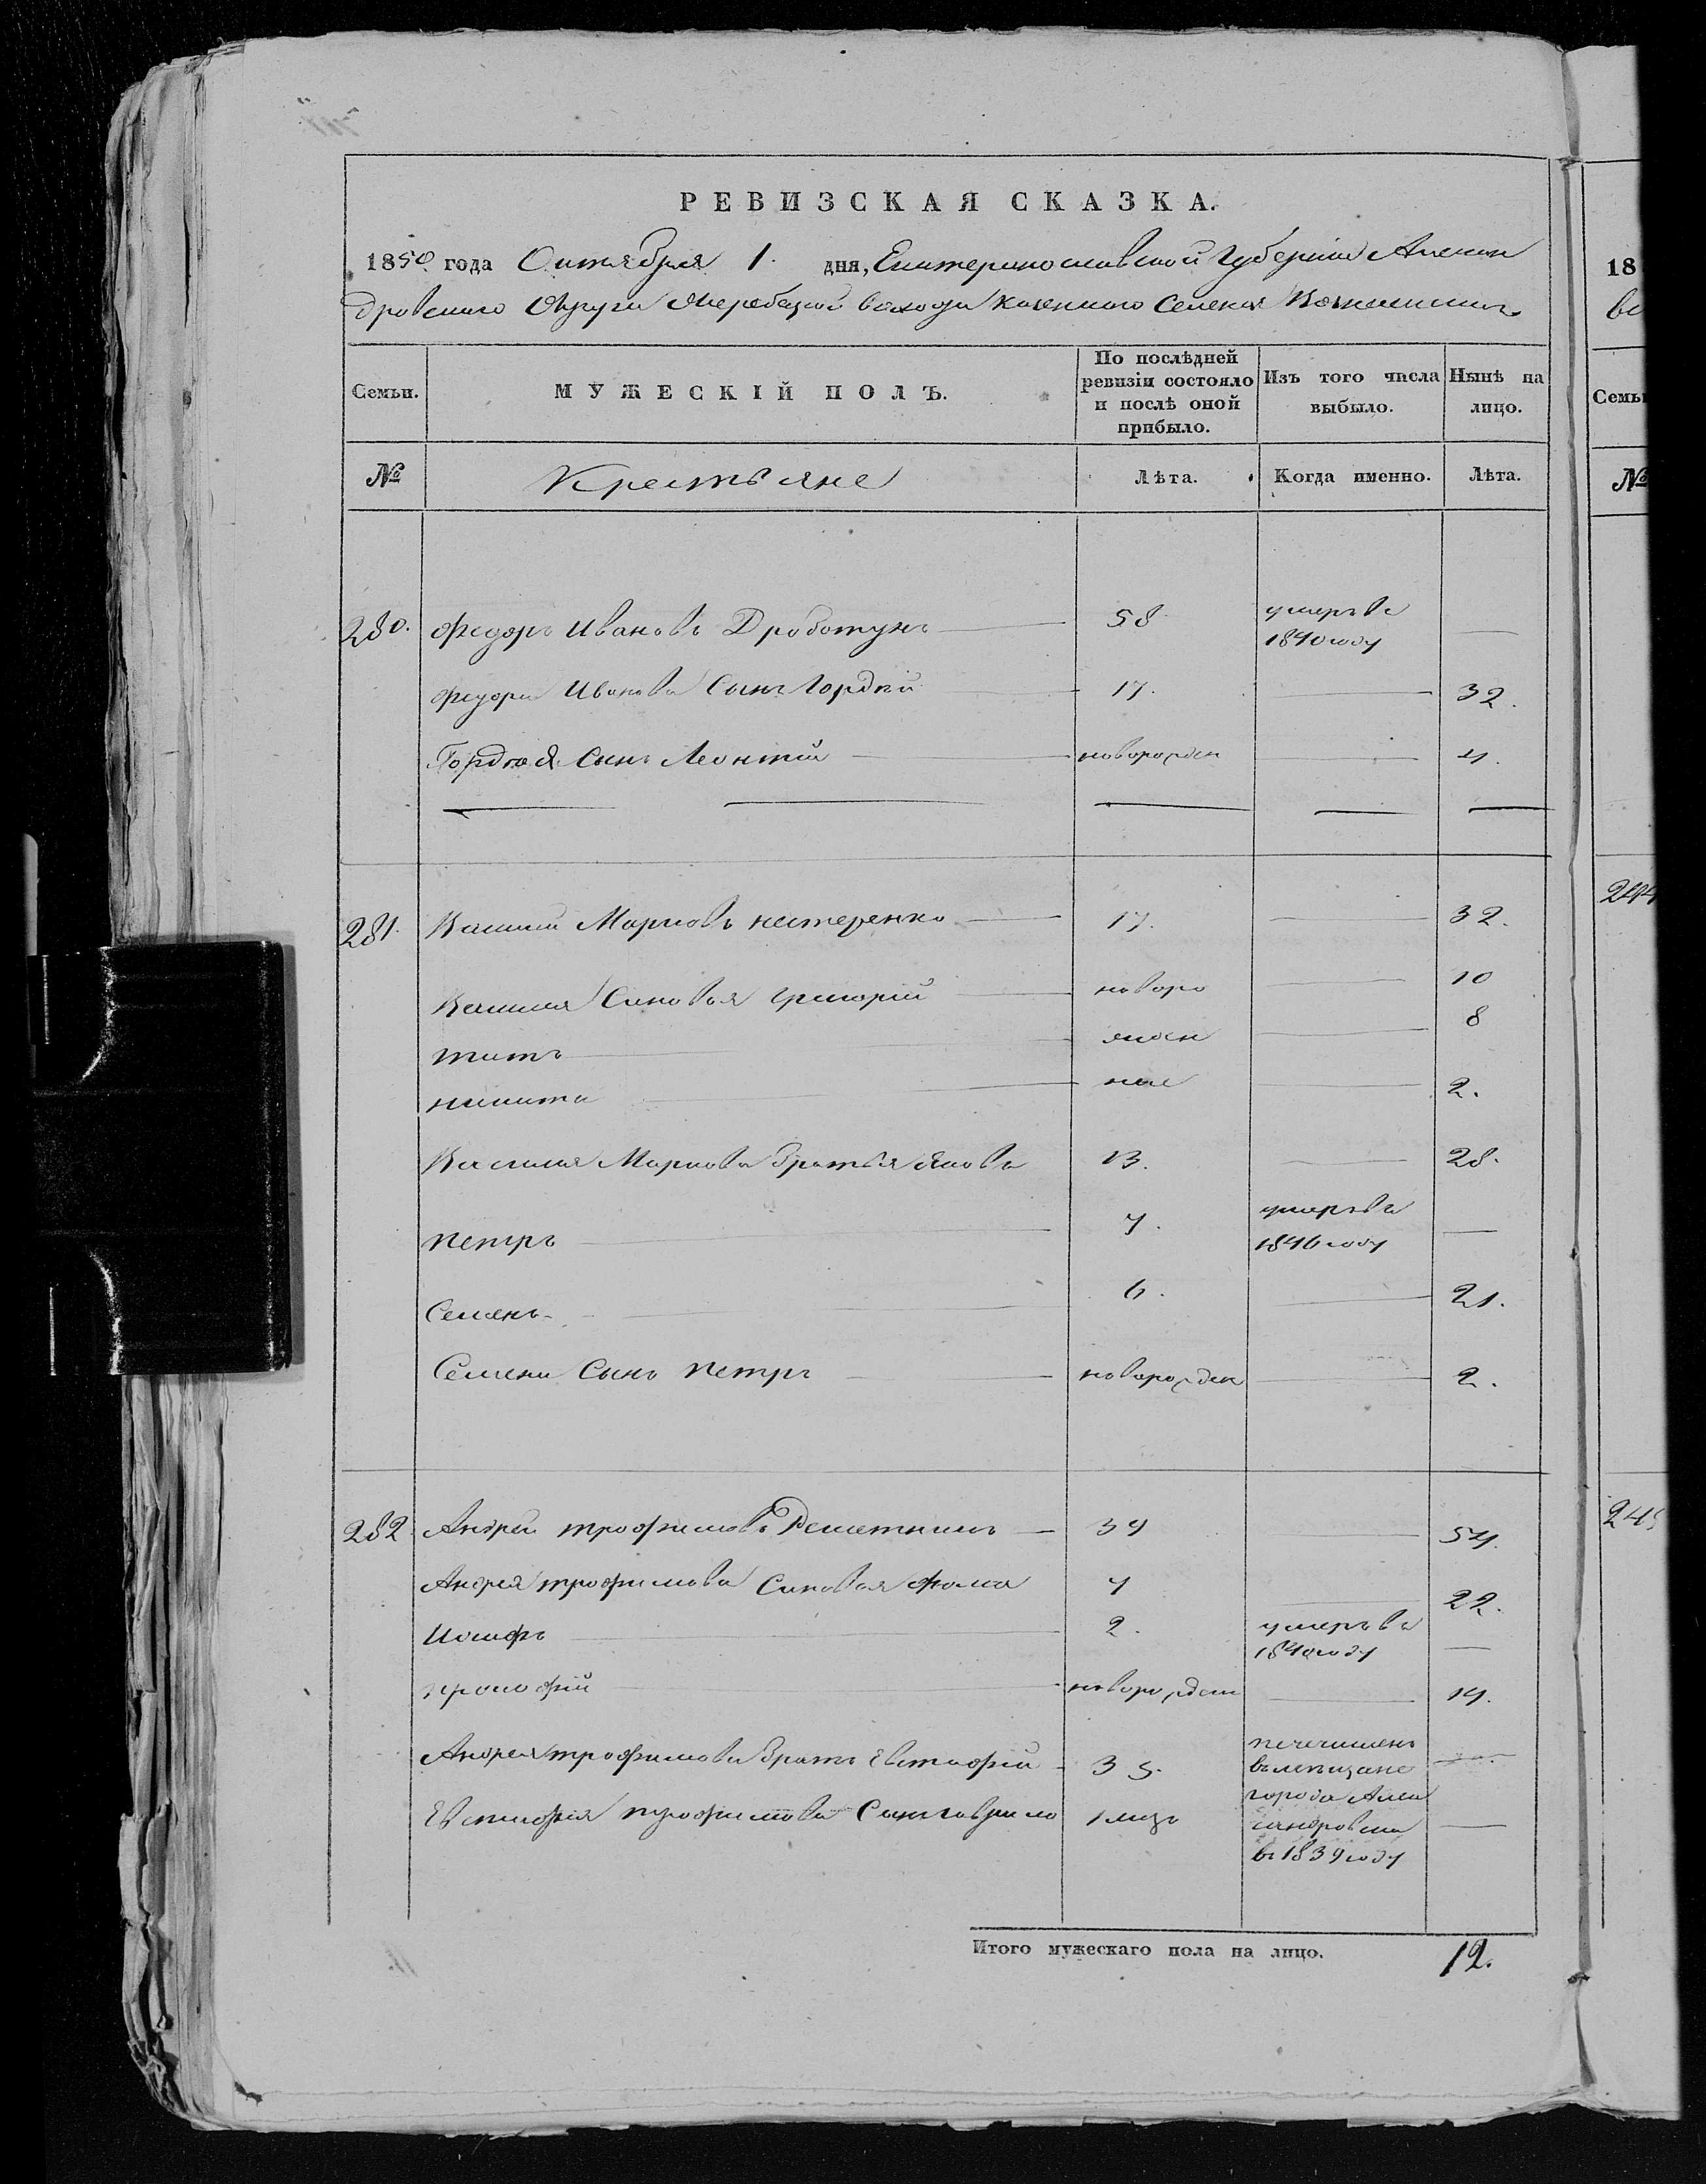 РЕВИЗСКАЯ СКАЗКА.
1850 года Октября 1. дня, Екатеринославской Губерніи Алексан
дровскаго Округа Жеребецкой волости казеннаго Селенія
Семьи.
МУЖЕСКІЙ ПОЛЪ.
По послѣдней ревизіи состояло и послѣ оной прибыло.
Изъ того числа выбыло.
Нынѣ на лицо.
№
Крестьяне
Лѣта.
Когда именно.
Лѣта.
280. Федоръ Ивановъ Дроботунъ 58 умеръ в 1840 году
Федора Иванова Сынъ Гордѣй 17. 32.
Гордѣя Сынъ Леонтій новорожден 4.
281. Василій Марковъ нестеренко 17. 32.
Василія Сыновья григорій новоро 10
титъ жден 8
никита ные 2.
Василія Маркова братья Яковъ 13. 28.
петръ 7. умеръ в 1846 году
Семенъ 6. 21.
Семена Сынъ петръ новорожден 2.
282 Андрей трофимовъ Решетникъ 39 54.
Андрея трофимова Сыновья фома 7 22.
Иосифъ 2. умеръ в 1840 году
прокофій новорожден 14.
Андрея трофимова братъ Евстафій 35. перечисленъ
в мещане
города Алек
сандровска
в 1839 году
Евстафія трофимова Сынъ гаврило 1 мцъ
Итого мужескаго пола на лицо. 12.
18
Семьи
№
244
245